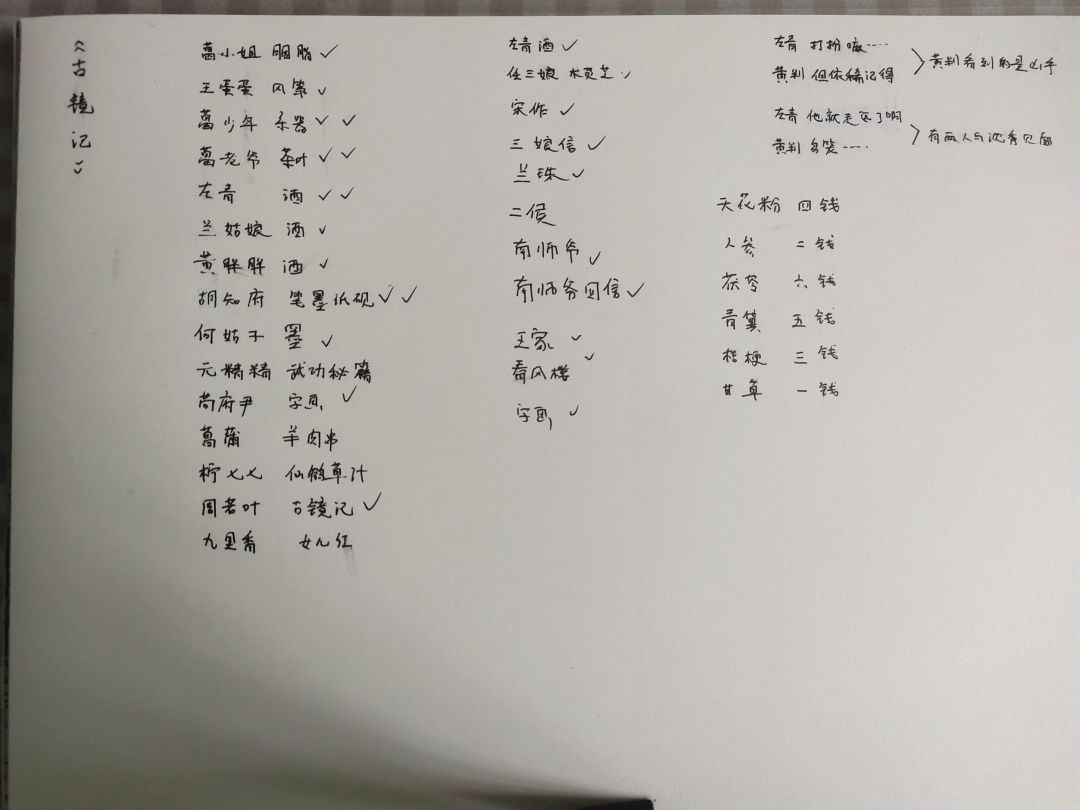 《古镜记》
葛小姐 胭脂 ✓
王蛋蛋 风筝 ✓
葛少年 乐器 ✓ ✓
葛老爷 茶叶 ✓ ✓
左青 酒 ✓ ✓
兰姑娘 酒 ✓
黄胖胖 酒 ✓
胡知府 笔墨纸砚 ✓ ✓
何姑子 墨 ✓
元精精 武功秘籍
尚府尹 字画 ✓
菖蒲 羊肉串
柠七七 仙鹤草汁
周老叶 古镜记 ✓
九里香 女儿红
左青酒 ✓
任三娘 木灵芝 ✓
宋作 ✓
三娘信 ✓
兰珠 ✓
二侯
南师爷 ✓
南师爷回信 ✓
王家 ✓
春风楼 ✓
字画 ✓
左青 打扮嘛……
黄判 但依稀记得
黄判看到的是凶手
左青 他就走远了啊
黄判
有两人与沈秀见面
天花粉 四钱
人参 二钱
茯苓 六钱
青黛 五钱
桔梗 三钱
甘草 一钱